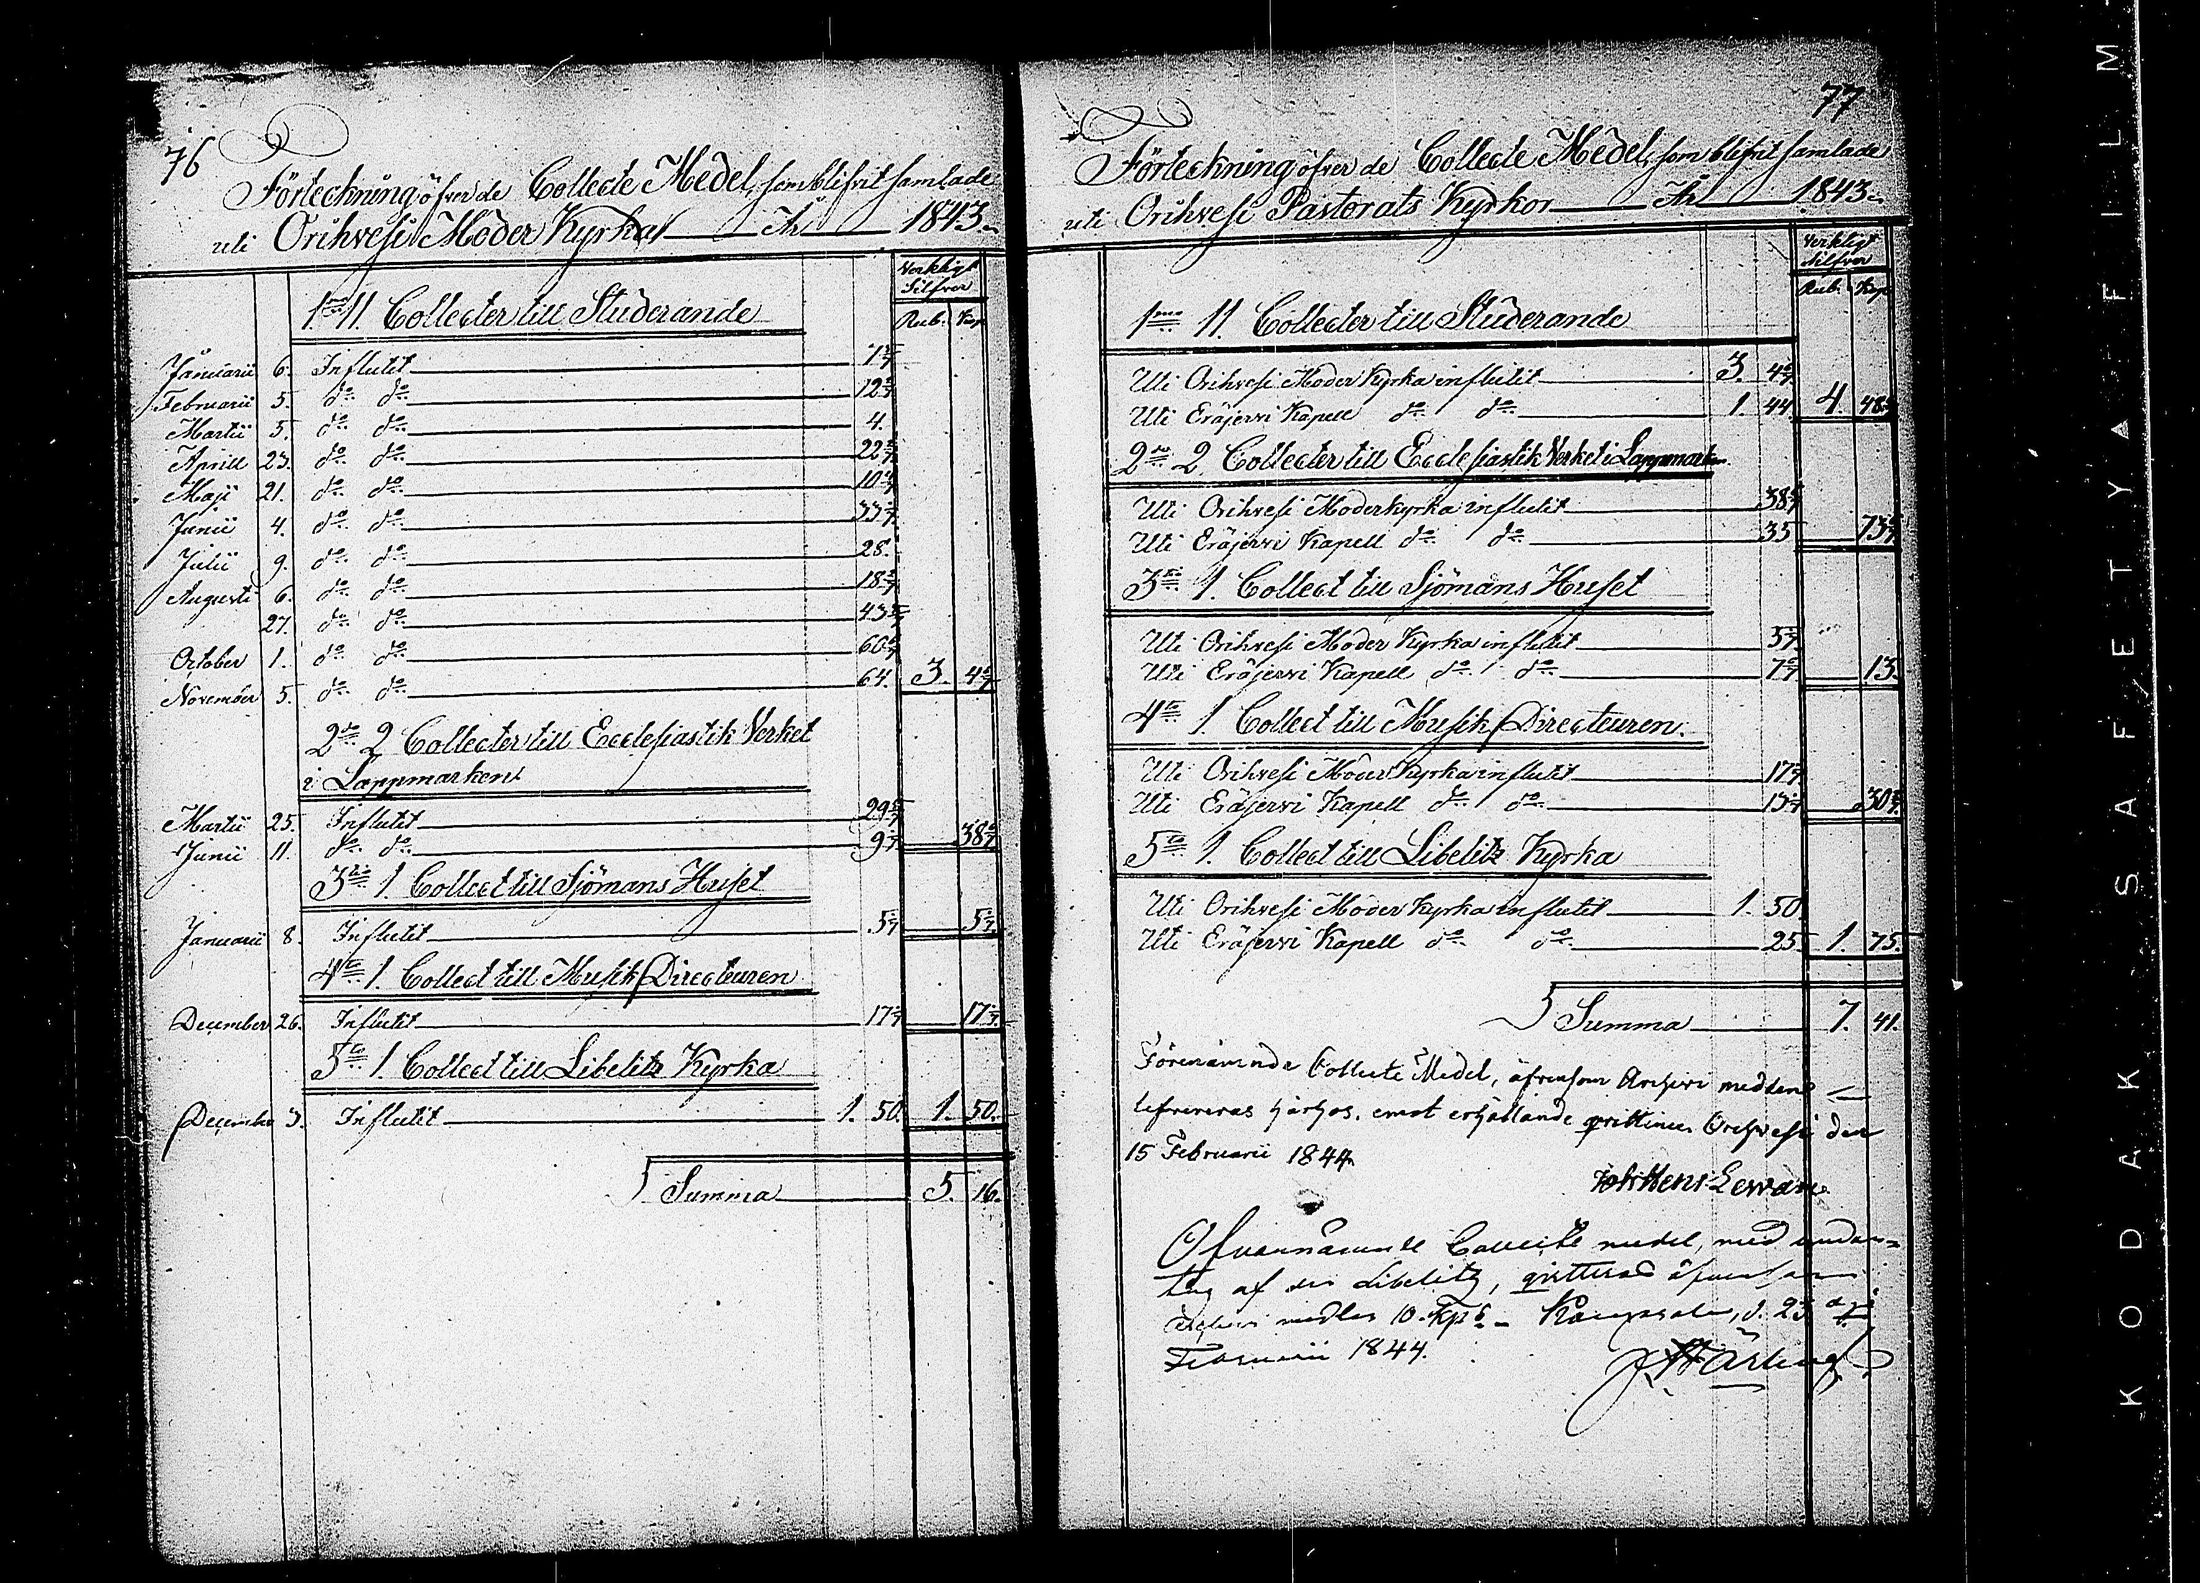 76
Förteckning öfver de Collecte Medel, som blifvit samlade
uti Orihvesi Moder Kyrka År 1843.
Verkligt Silfver
Rub. Kop
1mo 11. Collecter till Studerande
Januarii 6. Influtit 1 5/7
Februarii 5. do do 12 2/7
Martii 5. do do 4.
Aprill 23. do do 22
Maji 21. do do 10
Junii 4. do do 33
Julii 9. do do 28.
Augusti 6. do do 18
27. do do 43
October 1. do do 60
November 5. do do 64. 3. 4
2do 2 Collecter till Ecclesiastik Verket
i Lappmarken
Martii 25. Influtit 29
Junii 11. do do 9 38
3tio 1. Collect till Sjömans Huset
Januarii 8. Influtit 5 5
4to 1. Collect till Musik Directeuren
December 26. Influtit 17 17
5to 1. Collect till Libelitz Kyrka
December 3. Influtit 1. 50. 1. 50.
Summa 5. 16.
77
Förteckning öfver de Collecte Medel, som blifvit samlade
uti Orihvesi Pastorats Kyrkor År 1843.
Verkligt Silfver
Rub. Kop
1mo 11. Collecter till Studerande
Uti Orihvesi Moder Kyrka influtit 3. 4
Uti Eräjervi Kapell do do 1. 44 4. 48
2do 2 Collecter till Ecclesiastik Verket i Lappmarken
Uti Orihvesi Moderkyrka influtit 38
Uti Eräjervi Kapell do do 35 73
3tio 1. Collect till Sjömans Huset
Uti Orihvesi Moder Kyrka influtit 5
Uti Eräjervi Kapell do do 7 13
4to 1 Collect till Musik Directeuren.
Uti Orihvesi Moder Kyrka influtit 17
Uti Eräjervi Kapell do do 13 30
5to 1. Collect till Libelitz Kyrka
Uti Orihvesi Moder Kyrka influtit 1. 50
Uti Eräjervi Kapell do do 25 1. 75.
Summa 7. 41.
Förenämnde Collecte Medel, äfvensom Archivi medlen
lefvereras härhos, emot erhållande qvittence. Orihvesi den
15 Februarii 1844
Joh Henr Levan
Ofvannämnde Collecte medel, med undan-
tag af den Libelitz, qvitteras äfvensom
Archivi medlen 10. Kop S. d. 23
Februarii 1844.
KODAK SAFETY FILM